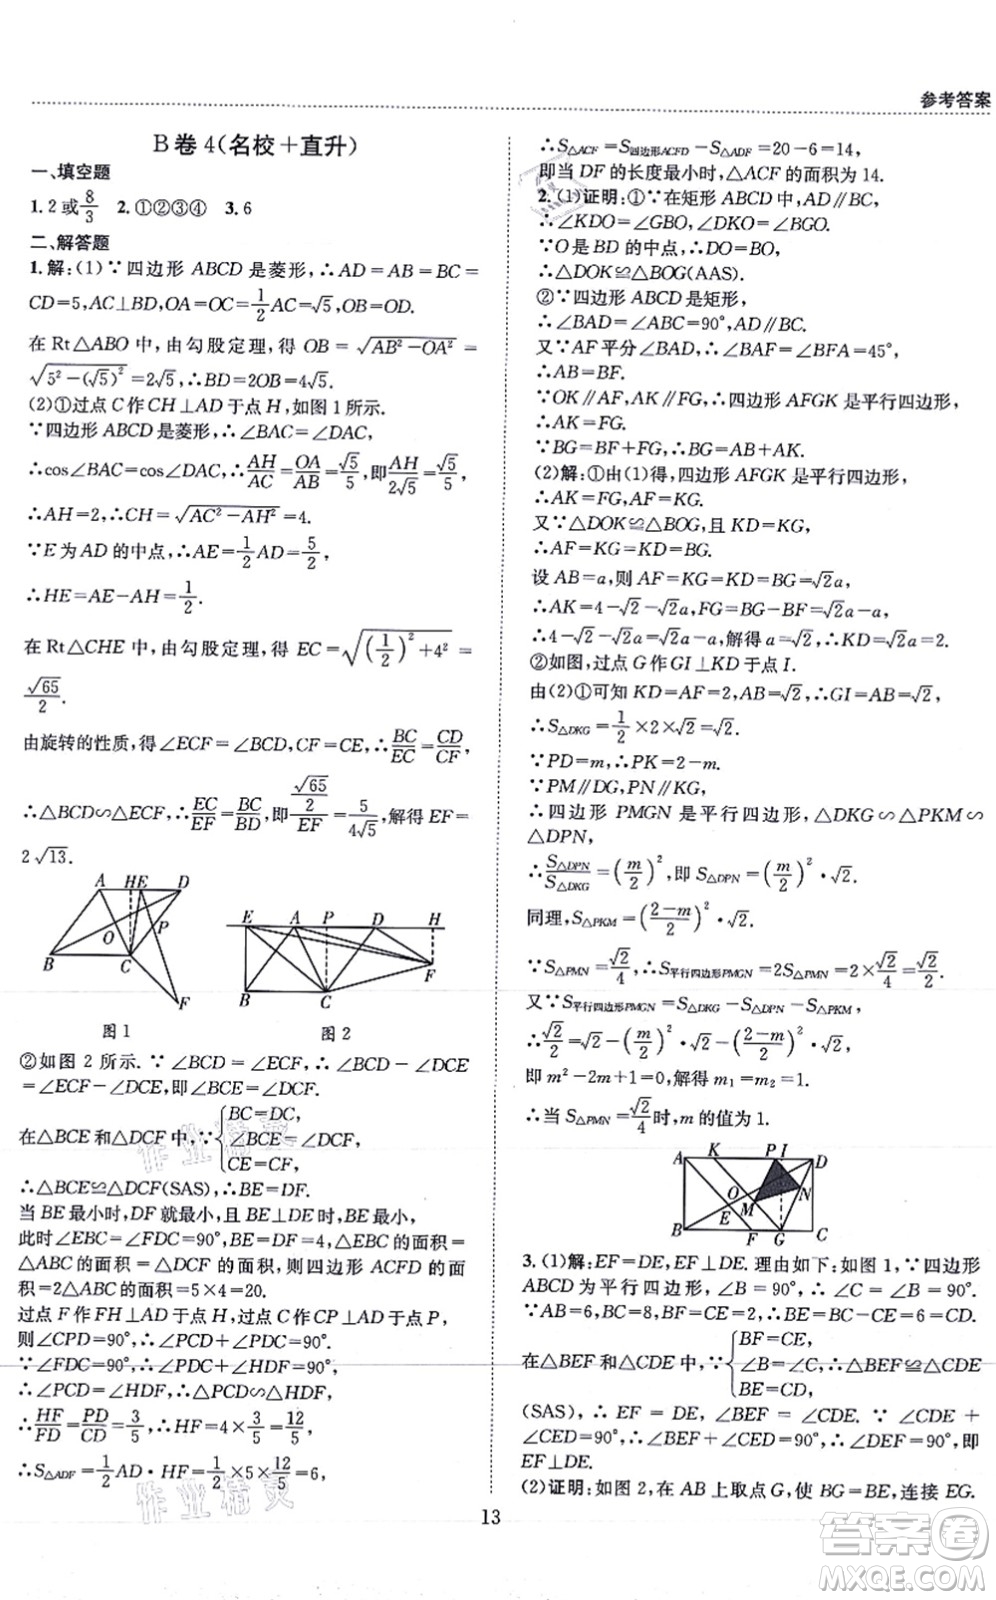 参考答案
B卷4(名校+直升)
一、填空题
1.2或8/3 2.①②③④ 3.6
二、解答题
1.解:(1)∵四边形ABCD是菱形,∴AD=AB=BC=
CD=5,AC⊥BD,OA=OC=1/2AC=√5,OB=OD.
在Rt△ABO中,由勾股定理,得OB=√(AB²-OA²)=
√(5²-(√5)²)=2√5,∴BD=2OB=4√5.
(2)①过点C作CH⊥AD于点H,如图1所示.
∵四边形ABCD是菱形,∴∠BAC=∠DAC,
∴cos∠BAC=cos∠DAC,∴AH/AC=OA/AB=√5/5,即AH/2√5=√5/5,
∴AH=2,∴CH=√(AC²-AH²)=4.
∵E为AD的中点,∴AE=1/2AD=5/2,
∴HE=AE-AH=1/2.
在Rt△CHE中,由勾股定理,得EC=√((1/2)²+4²)=
√65/2.
由旋转的性质,得∠ECF=∠BCD,CF=CE,∴BC/EC=CD/CF,
∴△BCD∽△ECF,∴EC/EF=BC/BD,即(√65/2)/EF=5/4√5,解得EF=
2√13.
A HE D
O P
B C
F
图1
E A P D H
F
B C
图2
②如图2所示.∵∠BCD=∠ECF,∴∠BCD-∠DCE
=∠ECF-∠DCE,即∠BCE=∠DCF.
在△BCE和△DCF中,∵{BC=DC,
∠BCE=∠DCF,
CE=CF,
∴△BCE≌△DCF(SAS),∴BE=DF.
当BE最小时,DF就最小,且BE⊥DE时,BE最小,
此时∠EBC=∠FDC=90°,BE=DF=4,△EBC的面积=
△ABC的面积=△DCF的面积,则四边形ACFD的面
积=2△ABC的面积=5×4=20.
过点F作FH⊥AD于点H,过点C作CP⊥AD于点P,
则∠CPD=90°,∴∠PCD+∠PDC=90°.
∵∠FDC=90°,∴∠PDC+∠HDF=90°,
∴∠PCD=∠HDF,∴△PCD∽△HDF,
∴HF/FD=PD/CD=3/5,∴HF=4×3/5=12/5,
∴S△ADF=1/2AD·HF=1/2×5×12/5=6,
∴S△ACF=S四边形ACFD-S△ADF=20-6=14,
即当DF的长度最小时,△ACF的面积为14.
2.(1)证明:①∵在矩形ABCD中,AD∥BC,
∴∠KDO=∠GBO,∠DKO=∠BGO.
∵O是BD的中点,∴DO=BO,
∴△DOK≌△BOG(AAS).
②∵四边形ABCD是矩形,
∴∠BAD=∠ABC=90°,AD∥BC.
又∵AF平分∠BAD,∴∠BAF=∠BFA=45°,
∴AB=BF.
∵OK∥AF,AK∥FG,∴四边形AFGK是平行四边形,
∴AK=FG.
∵BG=BF+FG,∴BG=AB+AK.
(2)解:①由(1)得,四边形AFGK是平行四边形,
∴AK=FG,AF=KG.
又∵△DOK≌△BOG,且KD=KG,
∴AF=KG=KD=BG.
设AB=a,则AF=KG=KD=BG=√2a,
∴AK=4-√2-√2a,FG=BG-BF=√2a-a,
∴4-√2-√2a=√2a-a,解得a=√2,∴KD=√2a=2.
②如图,过点G作GI⊥KD于点I.
由(2)①可知KD=AF=2,AB=√2,∴GI=AB=√2,
∴S△DKG=1/2×2×√2=√2.
∵PD=m,∴PK=2-m.
∵PM∥DG,PN∥KG,
∴四边形PMGN是平行四边形,△DKG∽△PKM∽
△DPN,
∴S△DPN/S△DKG=(m/2)²,即S△DPN=(m/2)²·√2.
同理,S△PKM=((2-m)/2)²·√2.
∵S△PMN=√2/4,∴S平行四边形PMGN=2S△PMN=2×√2/4=√2/2.
又∵S平行四边形PMGN=S△DKG-S△DPN-S△PKM,
∴√2/2=√2-(m/2)²·√2-((2-m)/2)²·√2,
即m²-2m+1=0,解得m₁=m₂=1.
∴当S△PMN=√2/4时,m的值为1.
A K P I D
O M N
B E F G C
3.(1)解:EF=DE,EF⊥DE.理由如下:如图1,∵四边形
ABCD为平行四边形,∠B=90°,∴∠B=∠C=90°.
∵AB=6,BC=8,BF=CE=2,∴BE=BC-CE=6=CD.
在△BEF和△CDE中,∵{BF=CE,
∠B=∠C,
BE=CD,
∴△BEF≌△CDE
(SAS),∴EF=DE,∠BEF=∠CDE.∵∠CDE+
∠CED=90°,∴∠BEF+∠CED=90°,∴∠FED=90°,即
EF⊥DE.
(2)证明:如图2,在AB上取点G,使BG=BE,连接EG.
13
作业精灵
作业精灵
答案卷
MXQE.COM